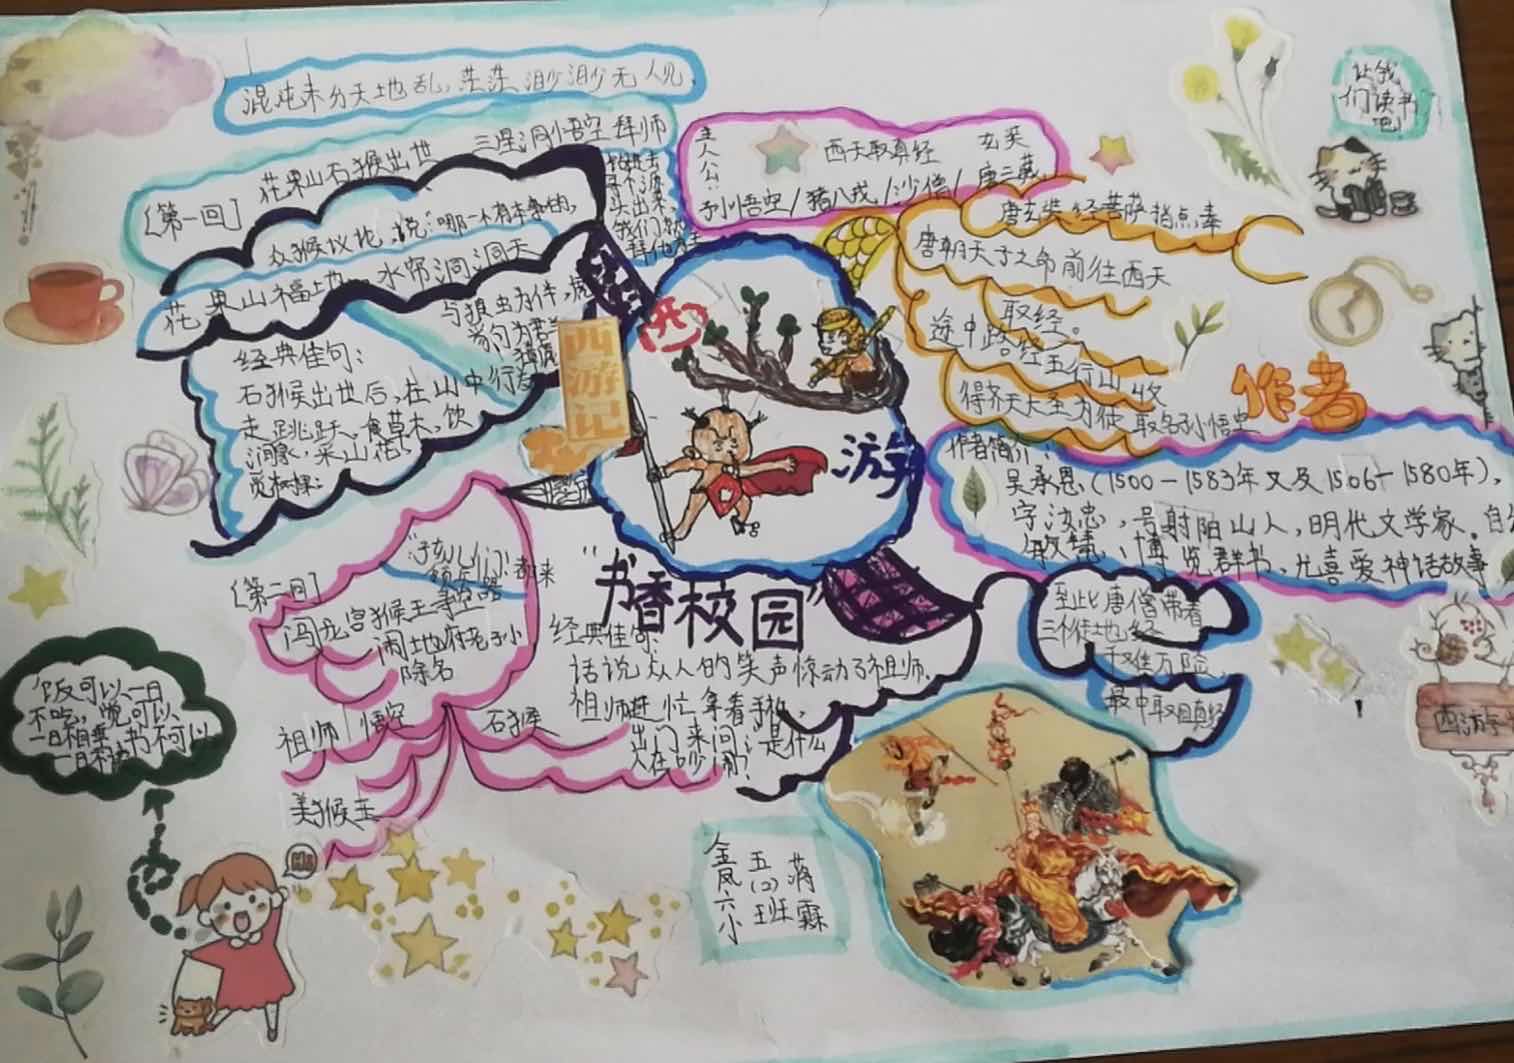 混沌未分天地乱，茫茫渺渺无人见
花果山石猴出世 三星洞悟空拜师
〔第一回〕
众猴议论，说：哪一个有本事的，
进去
头出来，
我们就
拜他为王
花果山福地 水帘洞洞天
与狼虫为伴，虎
豹为群
经典佳句：
石猴出世后，在山中行
走跳跃、食草木，饮
涧泉，采山花，
觅树果：
西
游
记
主人公：
西天取真经 玄奘
孙悟空/猪八戒/沙僧/唐三藏
唐玄奘经菩萨指点，奉
唐朝天子之命前往西天
取经。
途中路经五行山 收
得齐天大圣为徒 取名孙悟空
让我
们读书
吧！
西
游
作者
作者简介：
吴承恩（1500－1583年又及1506－1580年），
字汝忠，号射阳山人，明代文学家。自幼
敏慧，博览群书，尤喜爱神话故事
“书香校园”
〔第二回〕
“孩儿们
闯龙宫猴王寻
闹地府老孙
除名
祖师 悟空 石猴
美猴王
经典佳句：
话说众人的笑声惊动了祖师，
祖师连忙拿着手杖，
出门来问：是什么
人在吵闹？
至此唐僧带着
三个徒
险
最中取回真经
饭可以一日
不吃，觉可以
一日不睡 书不可以
一日不读
Hi
西游
金凤六小
五（2）班
蒋霖